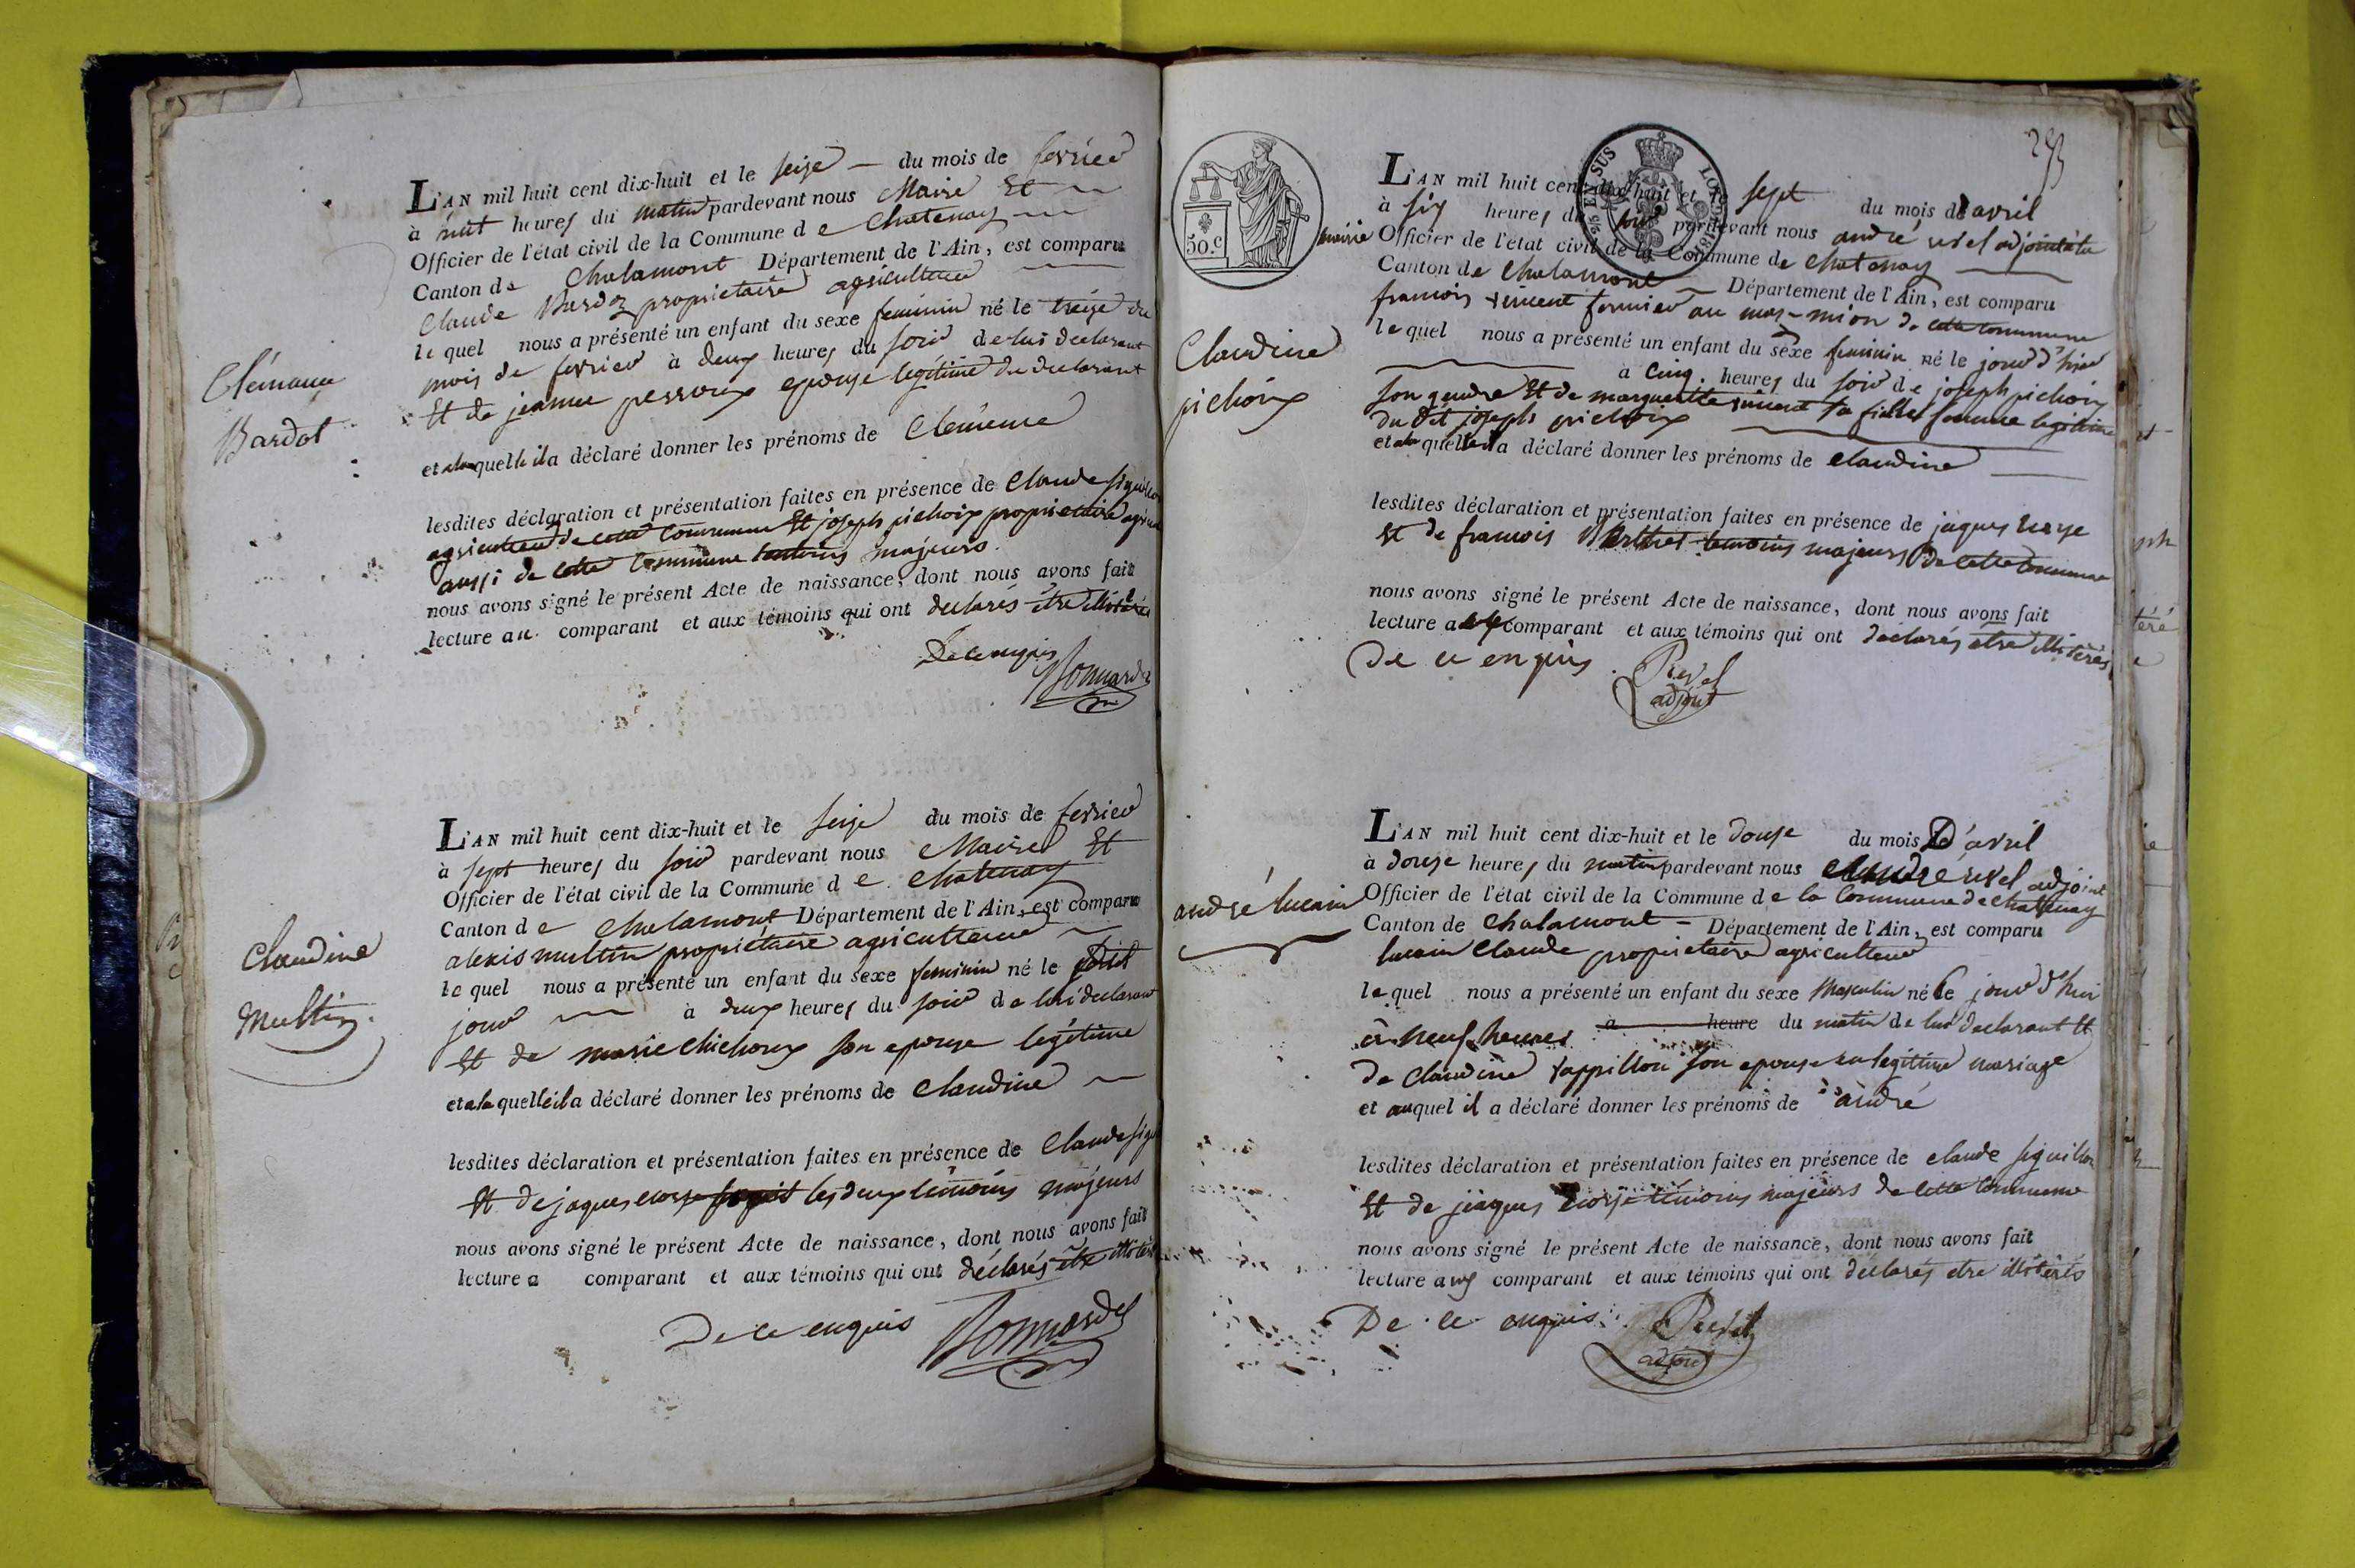 Clémance
Bardot
L'AN mil huit cent dix-huit et le seize du mois de fevrier
à huit heures du matin pardevant nous Maire Et
Officier de l'état civil de la Commune de Chatenay
Canton de Chalamont Département de l'Ain, est comparu
Claude Bardoz proprietaire agriculteur
le quel nous a présenté un enfant du sexe feminin né le treize du
mois de fevrier à deux heures du soir de lui declarant
Et de jeanne perroux epouse legitime du declarant
et a la quelle il a déclaré donner les prénoms de Clémence
lesdites déclaration et présentation faites en présence de Claude siguillon
agriculteur de cette Commune Et joseph pichoix proprietaire
aussi de cette Commune temoins majeurs.
nous avons signé le présent Acte de naissance, dont nous avons fait
lecture au comparant et aux témoins qui ont declarés être illiterés
De ce enquis
Bonnardel
Claudine
Multin
L'AN mil huit cent dix-huit et le seize du mois de fevrier
à sept heures du soir pardevant nous Maire Et
Officier de l'état civil de la Commune de Chatenay
Canton de Chalamont Département de l'Ain, est comparu
alexis multin propriétaire agriculteur
le quel nous a présenté un enfant du sexe feminin né le
jour à deux heures du soir de lui declarant
Et de marie Chichoux son epouse legitime
et a la quelle il a déclaré donner les prénoms de Claudine
lesdites déclaration et présentation faites en présence de Claude
Et de jaques les deux témoins majeurs
nous avons signé le présent Acte de naissance, dont nous avons fait
lecture a comparant et aux témoins qui ont déclarés être
De ce enquis Bonnardel
50.c
Claudine
pichoix
L'AN mil huit cent dix-huit et le sept du mois d avril
à six heures du soir pardevant nous andré revel adjoint à la
mairie Officier de l'état civil de la Commune de Chatenay
Canton de Chalamont Département de l'Ain, est comparu
francois vincent fermier au mas-mion de cette commune
le quel nous a présenté un enfant du sexe feminin né le jour d'hier
à cinq heures du soir de joseph pichoix
son gendre Et de marguerite vincent sa fille femme legitime
du dit joseph pichoix
et a la quelle il a déclaré donner les prénoms de claudine
lesdites déclaration et présentation faites en présence de jaques
Et de francois temoins majeurs De cette Commune
nous avons signé le présent Acte de naissance, dont nous avons fait
lecture a comparant et aux témoins qui ont déclarés etre illiterés
De ce enquis. Revel
adjoint
andré lucain
L'AN mil huit cent dix-huit et le douze du mois D'avril
à douze heures du matin pardevant nous andré revel adjoint
Officier de l'état civil de la Commune de la Commune de Chattenay
Canton de Chalamont Département de l'Ain, est comparu
lucain Claude proprietaire agriculteur
le quel nous a présenté un enfant du sexe Masculin né le jour d'hui
à neuf heures à heure du matin de lui declarant Et
de Claudine pappillon son epouse en legitime mariage
et auquel il a déclaré donner les prénoms de andré
lesdites déclaration et présentation faites en présence de claude siguillon
Et de jaques témoins majeurs de cette Commune
nous avons signé le présent Acte de naissance, dont nous avons fait
lecture aux comparant et aux témoins qui ont déclarés etre illiterés
De ce enquis Revel
adjoint